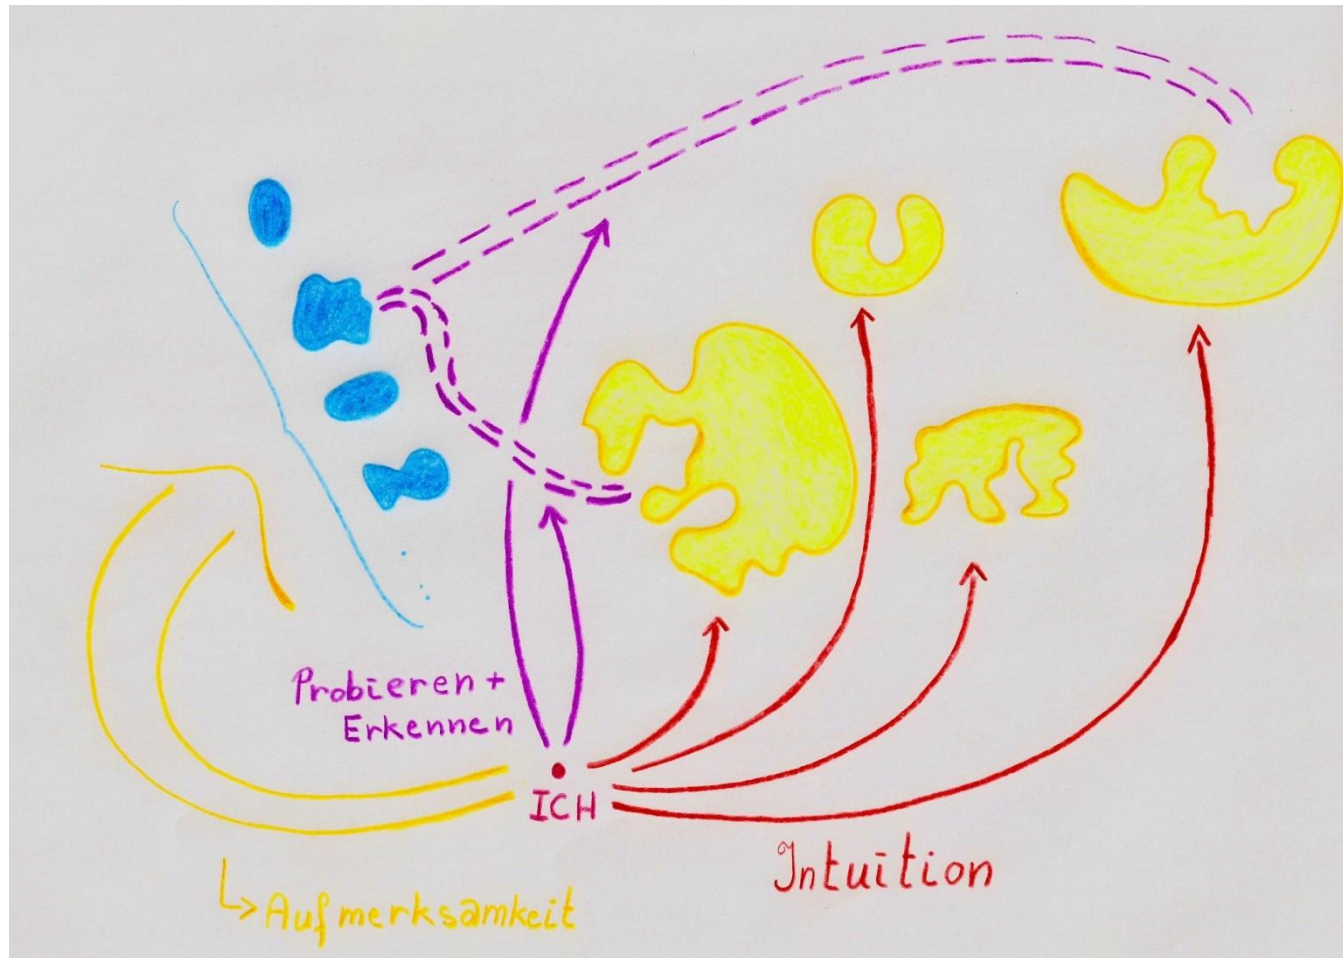 Probieren +
Erkennen
ICH
Intuition
Aufmerksamkeit